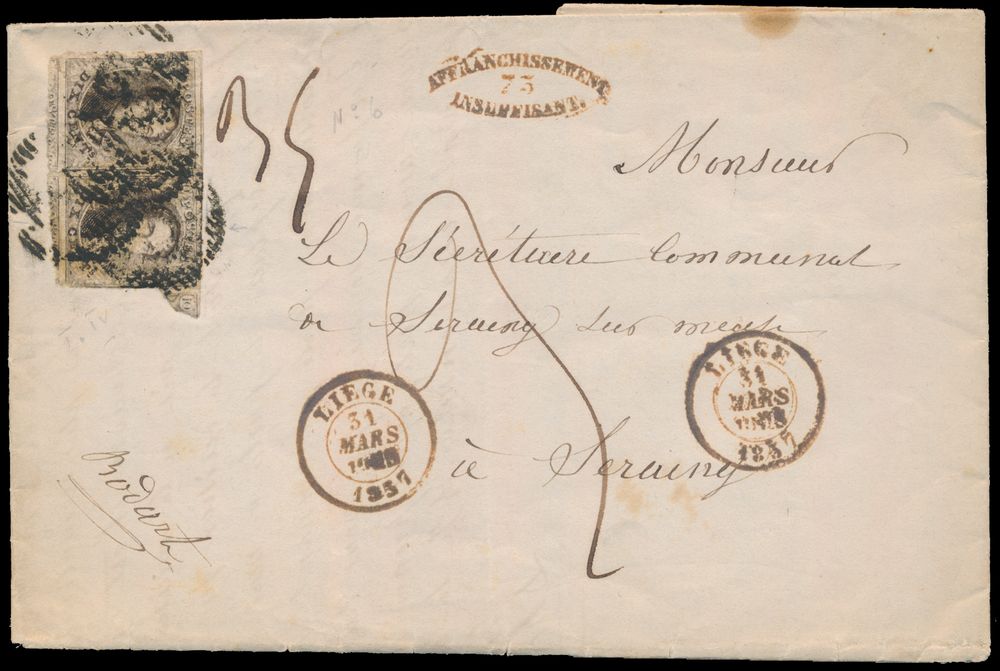 AFFRANCHISSEMENT
73
INSUFFISANT.
N° 6
Monsieur
Le Sécrétaire Communal
de Seraing sur meuse
à Seraing
LIEGE
31
MARS
1857
LIEGE
31
MARS
1857
Bodart
DIX
10